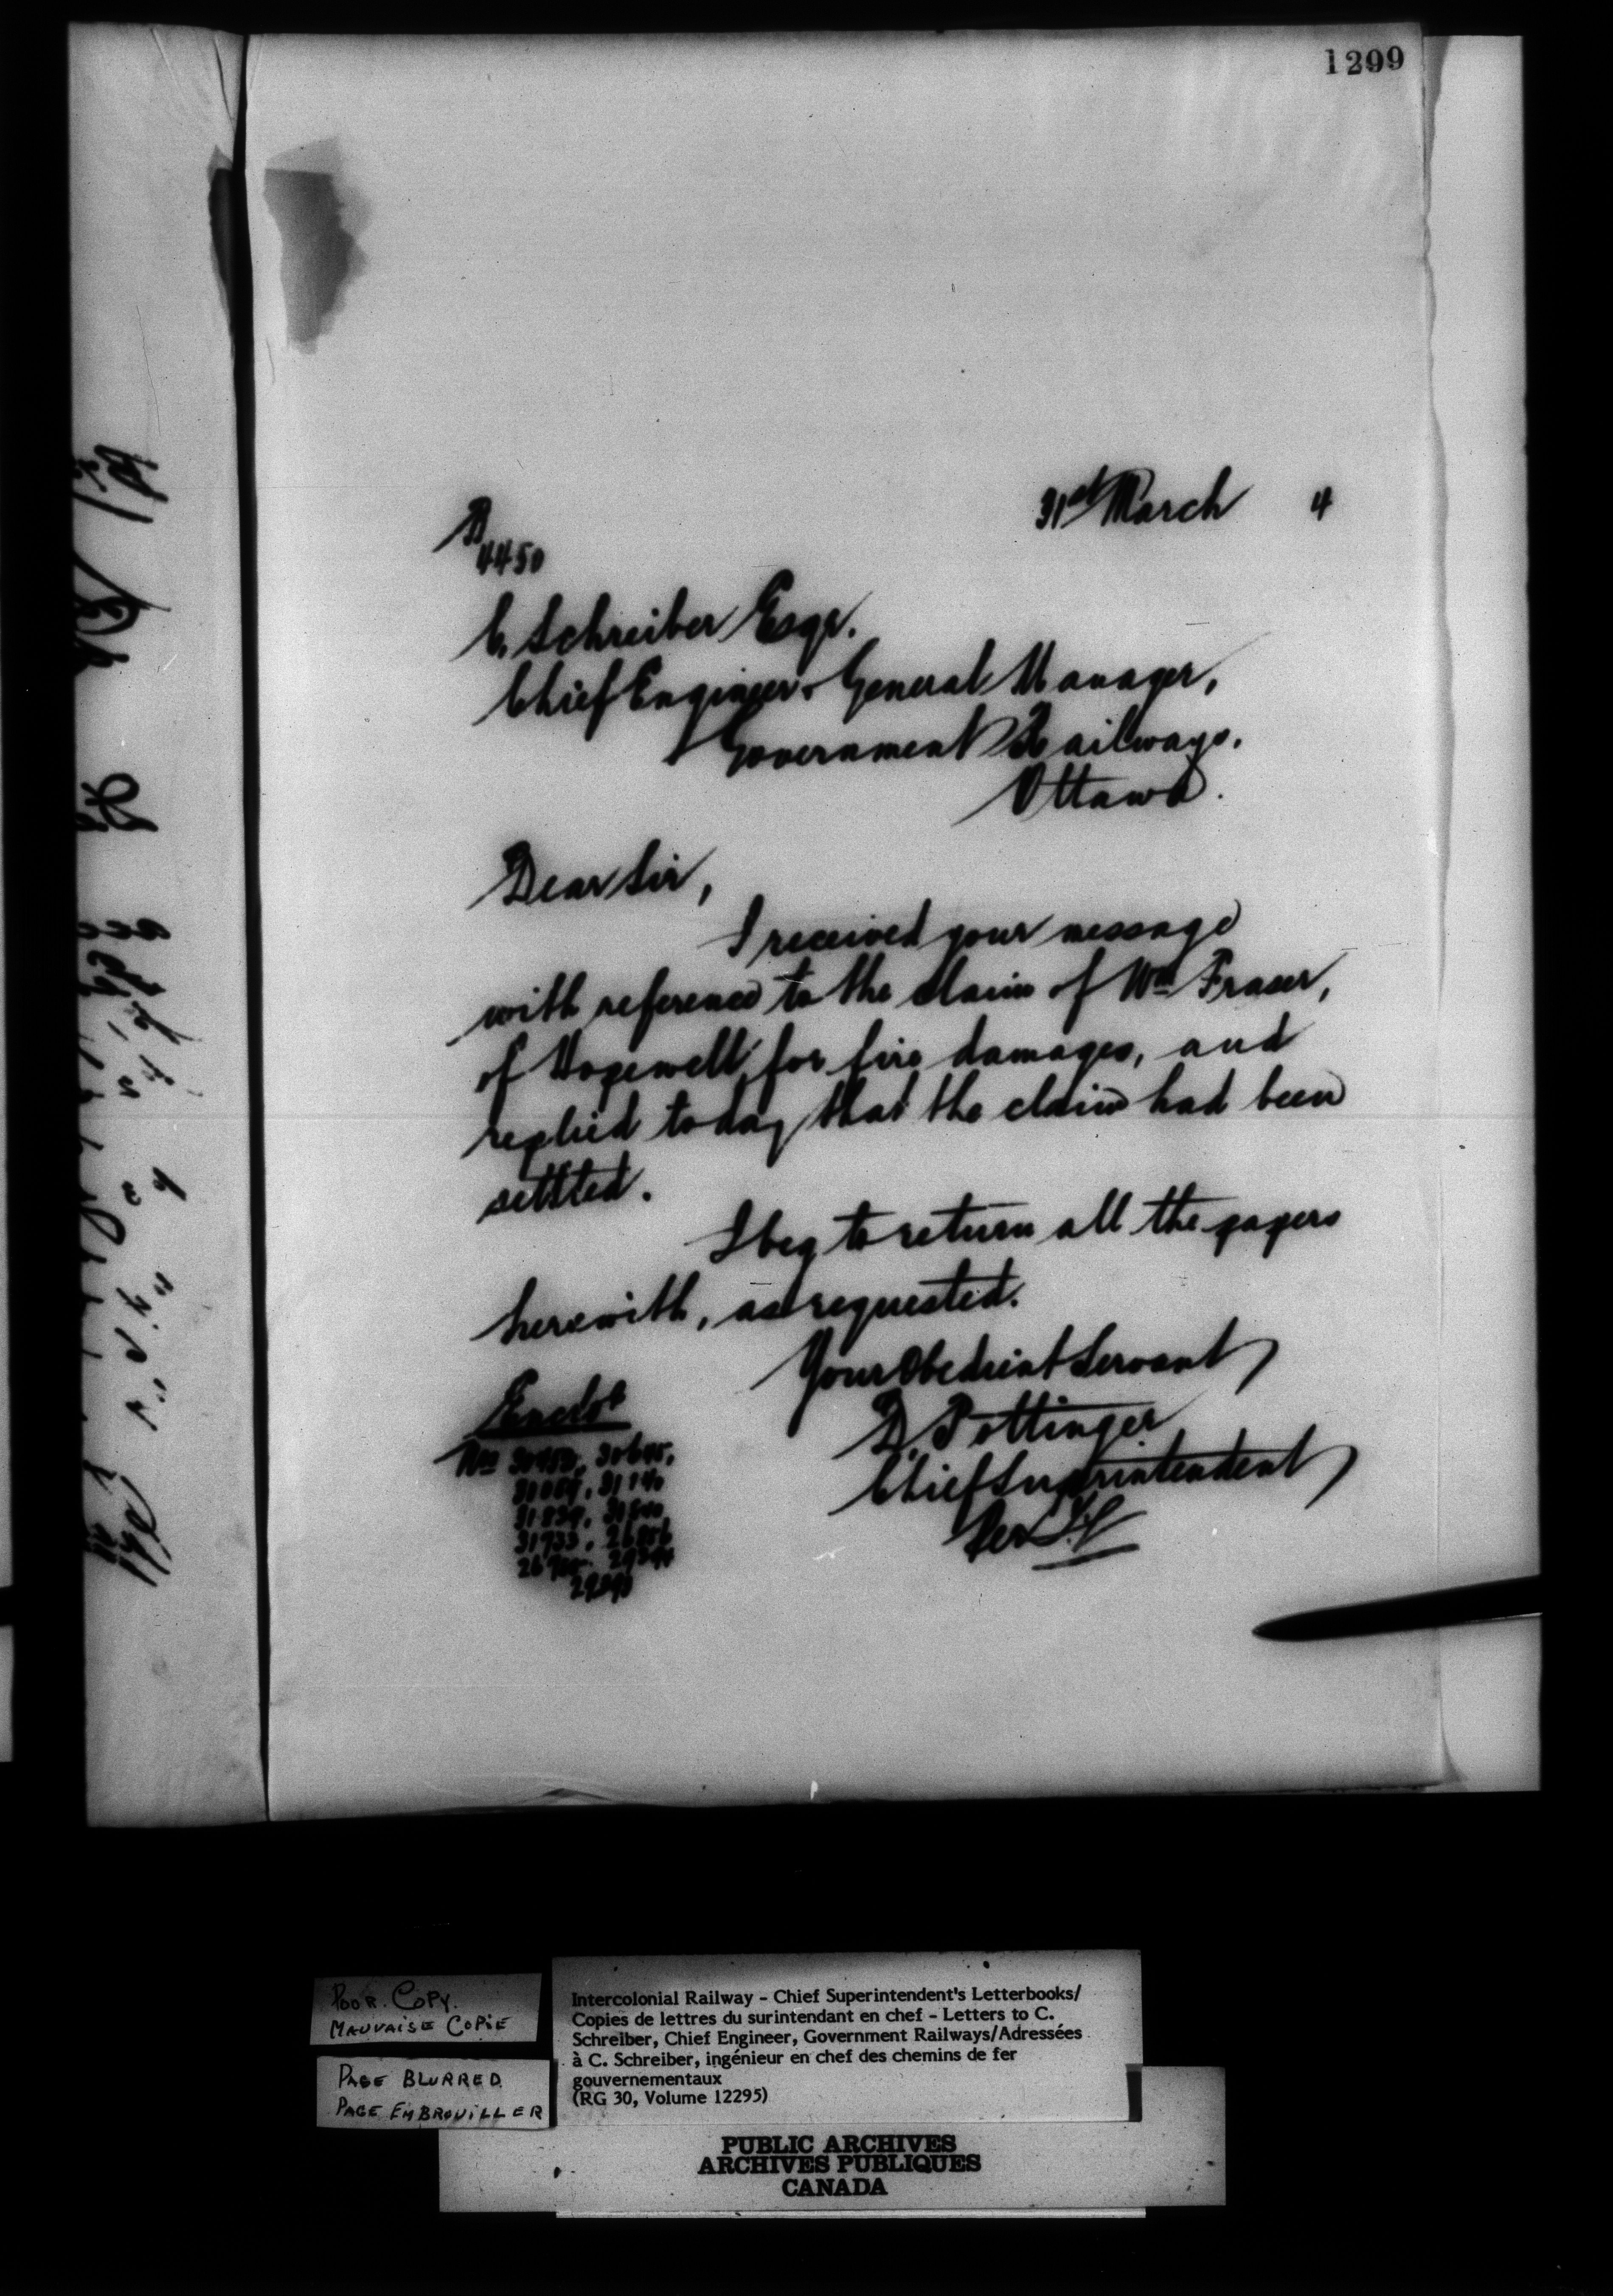 1299
31st March 4
B
4450
C. Schreiber Esqr.
Chief Engineer & General Manager,
Government Railways.
Ottawa.
Dear Sir,
I received your message
with reference to the claim of Wm Fraser,
of Hopewell, for fire damages, and
replied today that the claim had been
settled.
I beg to return all the papers
herewith, as requested.
Your Obedient Servant
D. Pottinger
Chief Superintendent
Per
Enclos
Nos
31140
31933,
POOR. COPY.
MAUVAISE COPIE
PAGE BLURRED
PAGE EMBROUILLER
Intercolonial Railway - Chief Superintendent's Letterbooks/
Copies de lettres du surintendant en chef - Letters to C.
Schreiber, Chief Engineer, Government Railways/Adressées
à C. Schreiber, ingénieur en chef des chemins de fer
gouvernementaux
(RG 30, Volume 12295)
PUBLIC ARCHIVES
ARCHIVES PUBLIQUES
CANADA